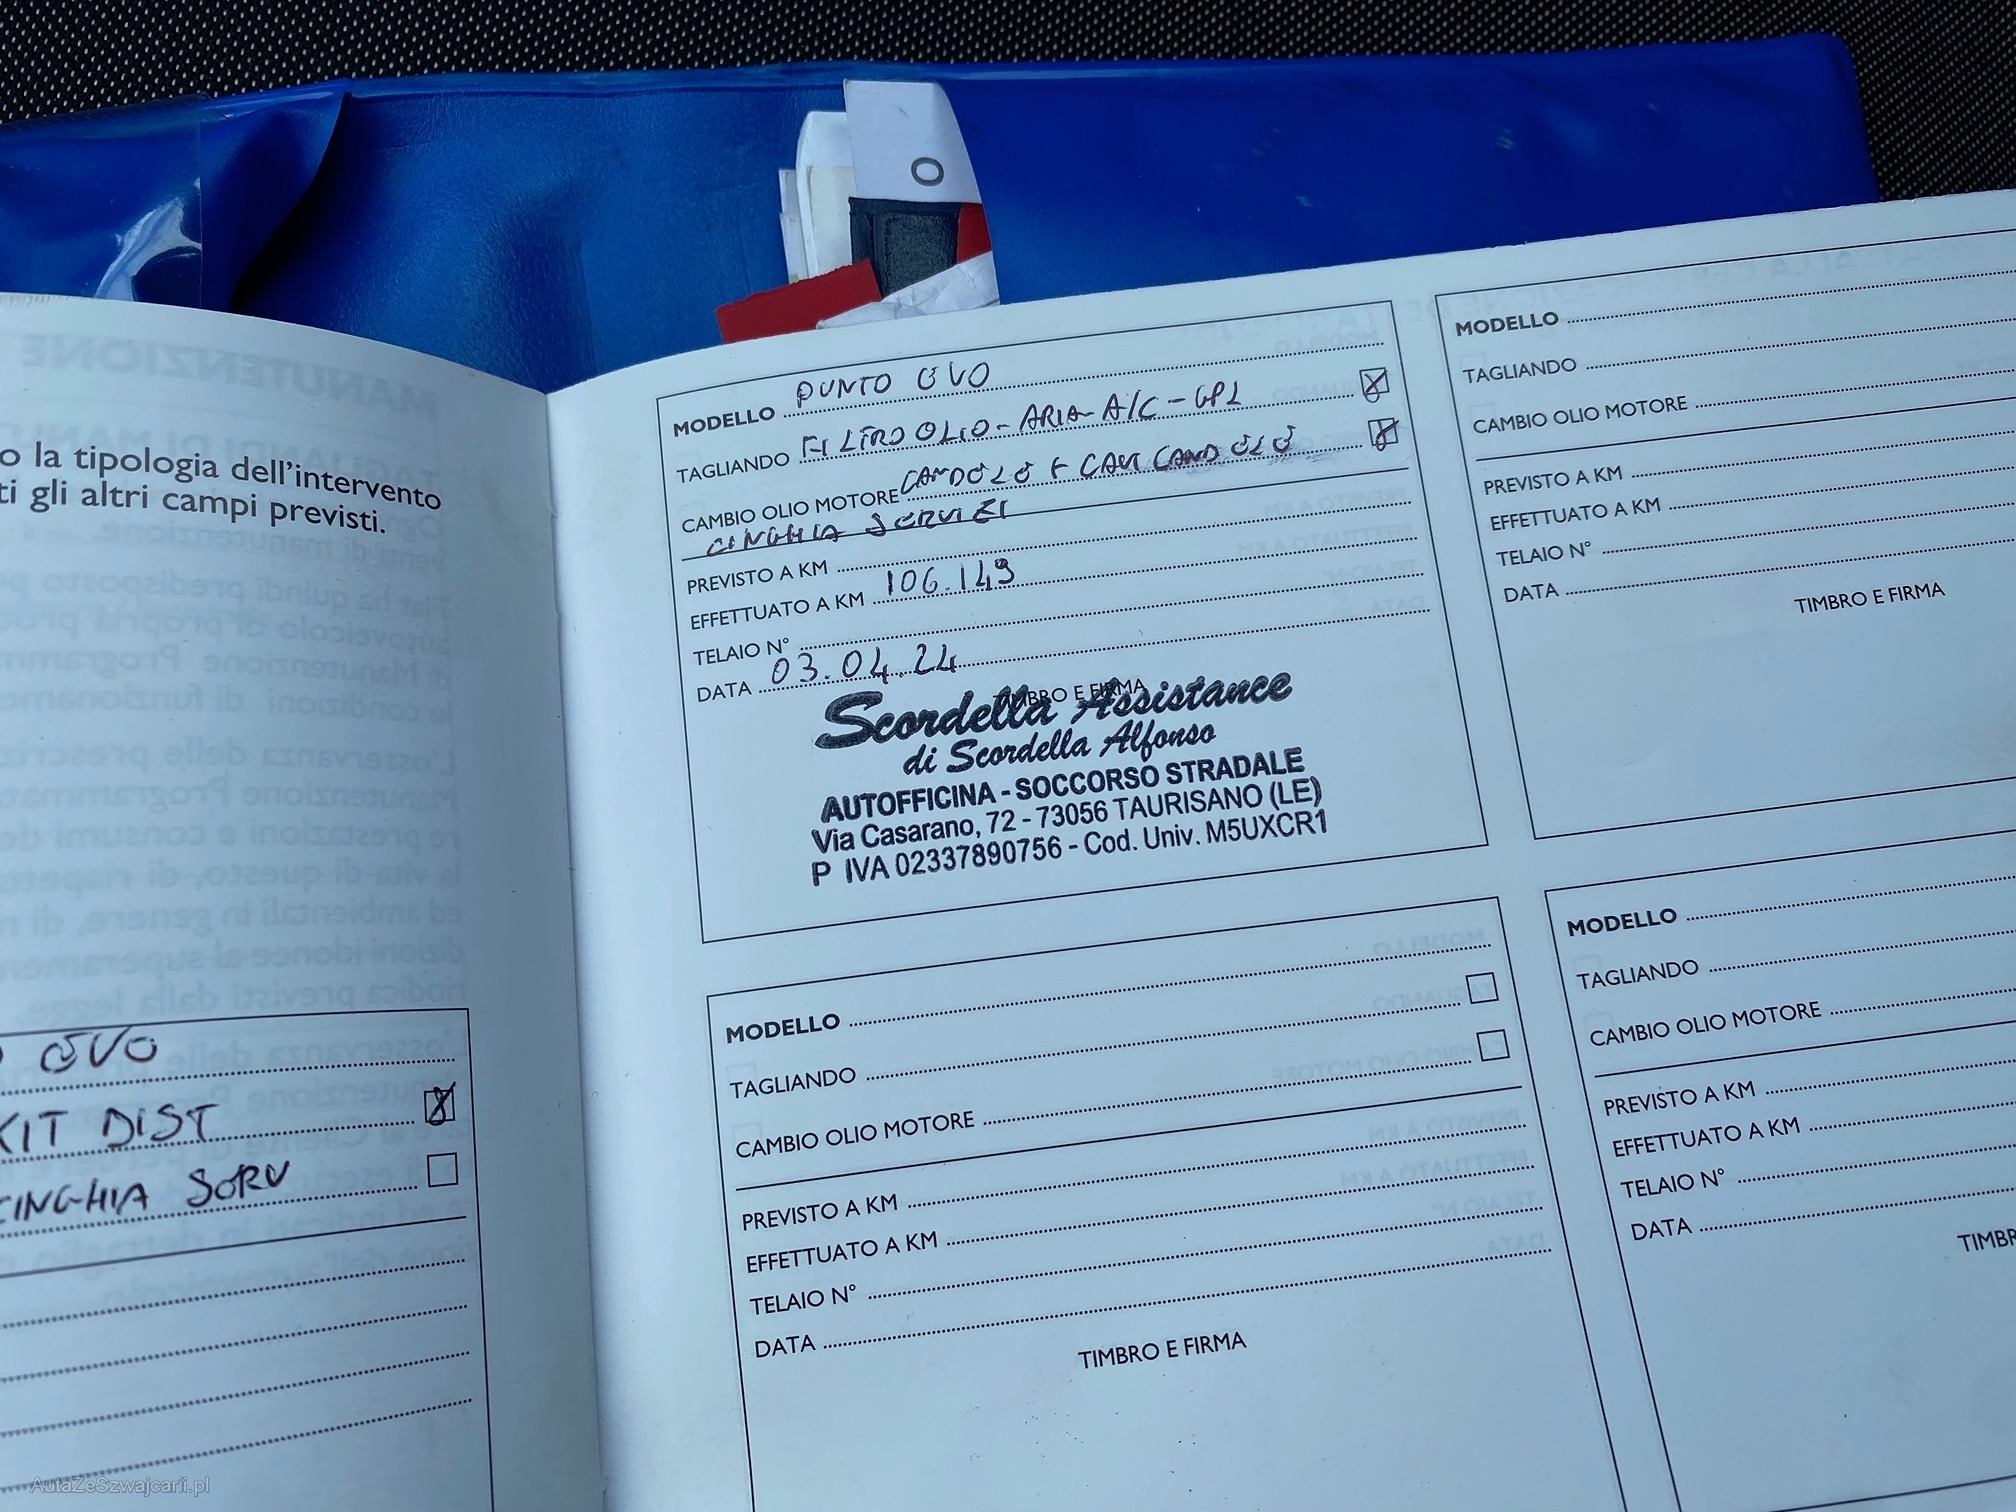 o la tipologia dell'intervento
ti gli altri campi previsti.
EVO
KIT DIST
CINGHIA SERV
O
MODELLO PUNTO EVO
TAGLIANDO FILTRO OLIO - ARIA - A/C - GPL
CAMBIO OLIO MOTORE CANDELE + CAVI CANDELE
CINGHIA SERVIZI
PREVISTO A KM
EFFETTUATO A KM 106.149
TELAIO N°
DATA 03.04.24
TIMBRO E FIRMA
Scordella Assistance
di Scordella Alfonso
AUTOFFICINA - SOCCORSO STRADALE
Via Casarano, 72 - 73056 TAURISANO (LE)
P IVA 02337890756 - Cod. Univ. M5UXCR1
MODELLO
TAGLIANDO
CAMBIO OLIO MOTORE
PREVISTO A KM
EFFETTUATO A KM
TELAIO N°
DATA
TIMBRO E FIRMA
MODELLO
TAGLIANDO
CAMBIO OLIO MOTORE
PREVISTO A KM
EFFETTUATO A KM
TELAIO N°
DATA
TIMBRO E FIRMA
MODELLO
TAGLIANDO
CAMBIO OLIO MOTORE
PREVISTO A KM
EFFETTUATO A KM
TELAIO N°
DATA
TIMBR
AutaZeSzwajcarii.pl